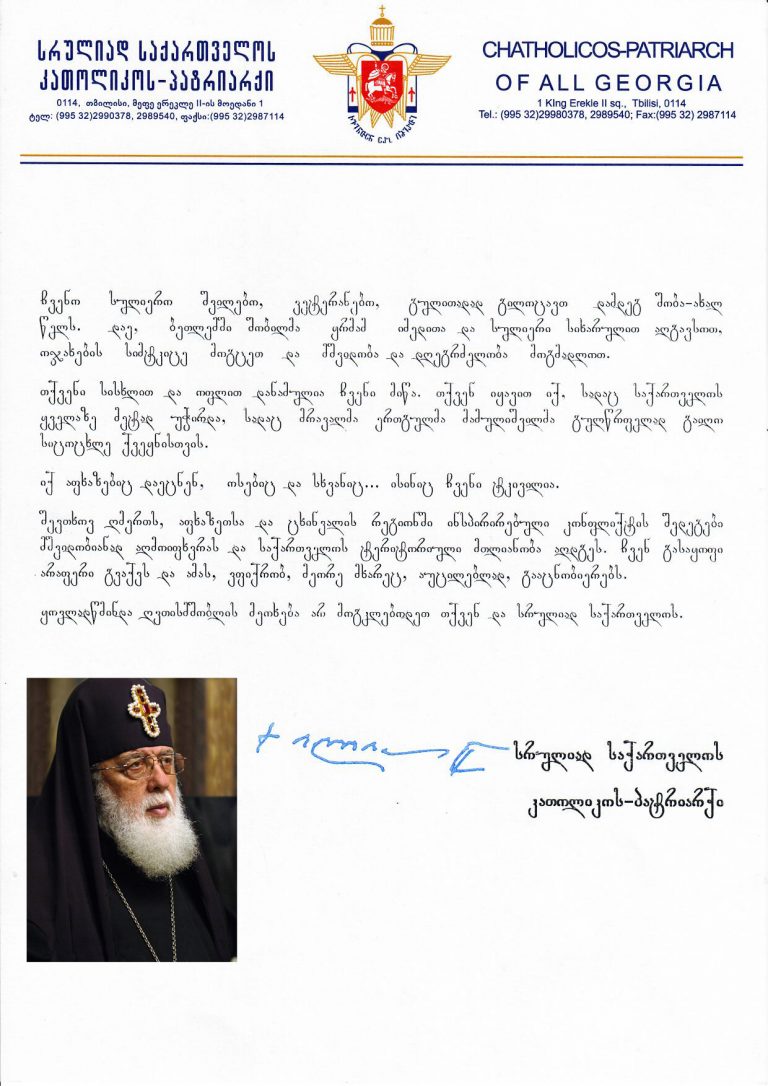 სრულიად საქართველოს
კათოლიკოს-პატრიარქი
0114, თბილისი, მეფე ერეკლე II-ის მოედანი 1
ტელ: (995 32)2990378, 2989540, ფაქსი:(995 32)2987114
CHATHOLICOS-PATRIARCH
OF ALL GEORGIA
1 King Erekle II sq., Tbilisi, 0114
Tel.: (995 32)29980378, 2989540; Fax:(995 32) 2987114
ჩვენო სულიერო შვილებო, ვეტერანებო, გულითადად გილოცავთ დამდეგ შობა-ახალ
წელს. დაე, ბეთლემში შობილმა ყრმამ იმედითა და სულიერი სიხარულით აღგავსოთ,
ოჯახების სიმტკიცე მოგცეთ და მშვიდობა და დღეგრძელობა მოგმადლოთ.
თქვენი სისხლით და ოფლით დანამულია ჩვენი მიწა. თქვენ იყავით იქ, სადაც საქართველოს
ყველაზე მეტად უჭირდა, სადაც მრავალმა ერთგულმა მამულიშვილმა გულწრფელად გაიღო
სიცოცხლე ქვეყნისთვის.
იქ აფხაზებიც დაეცნენ, ოსებიც და სხვანიც... ისინიც ჩვენი ტკივილია.
შევთხოვ ღმერთს, აფხაზეთსა და ცხინვალის რეგიონში ინსპირირებული კონფლიქტის შედეგები
მშვიდობიანად აღმოიფხვრას და საქართველოს ტერიტორიული მთლიანობა აღდგეს. ჩვენ გასაყოფი
არაფერი გვაქვს და ამას, ვფიქრობ, მეორე მხარეც, აუცილებლად, გააცნობიერებს.
ყოვლადწმინდა ღვთისმშობლის მეოხება არ მოგკლებოდეთ თქვენ და სრულიად საქართველოს.
სრულიად საქართველოს
კათოლიკოს-პატრიარქი